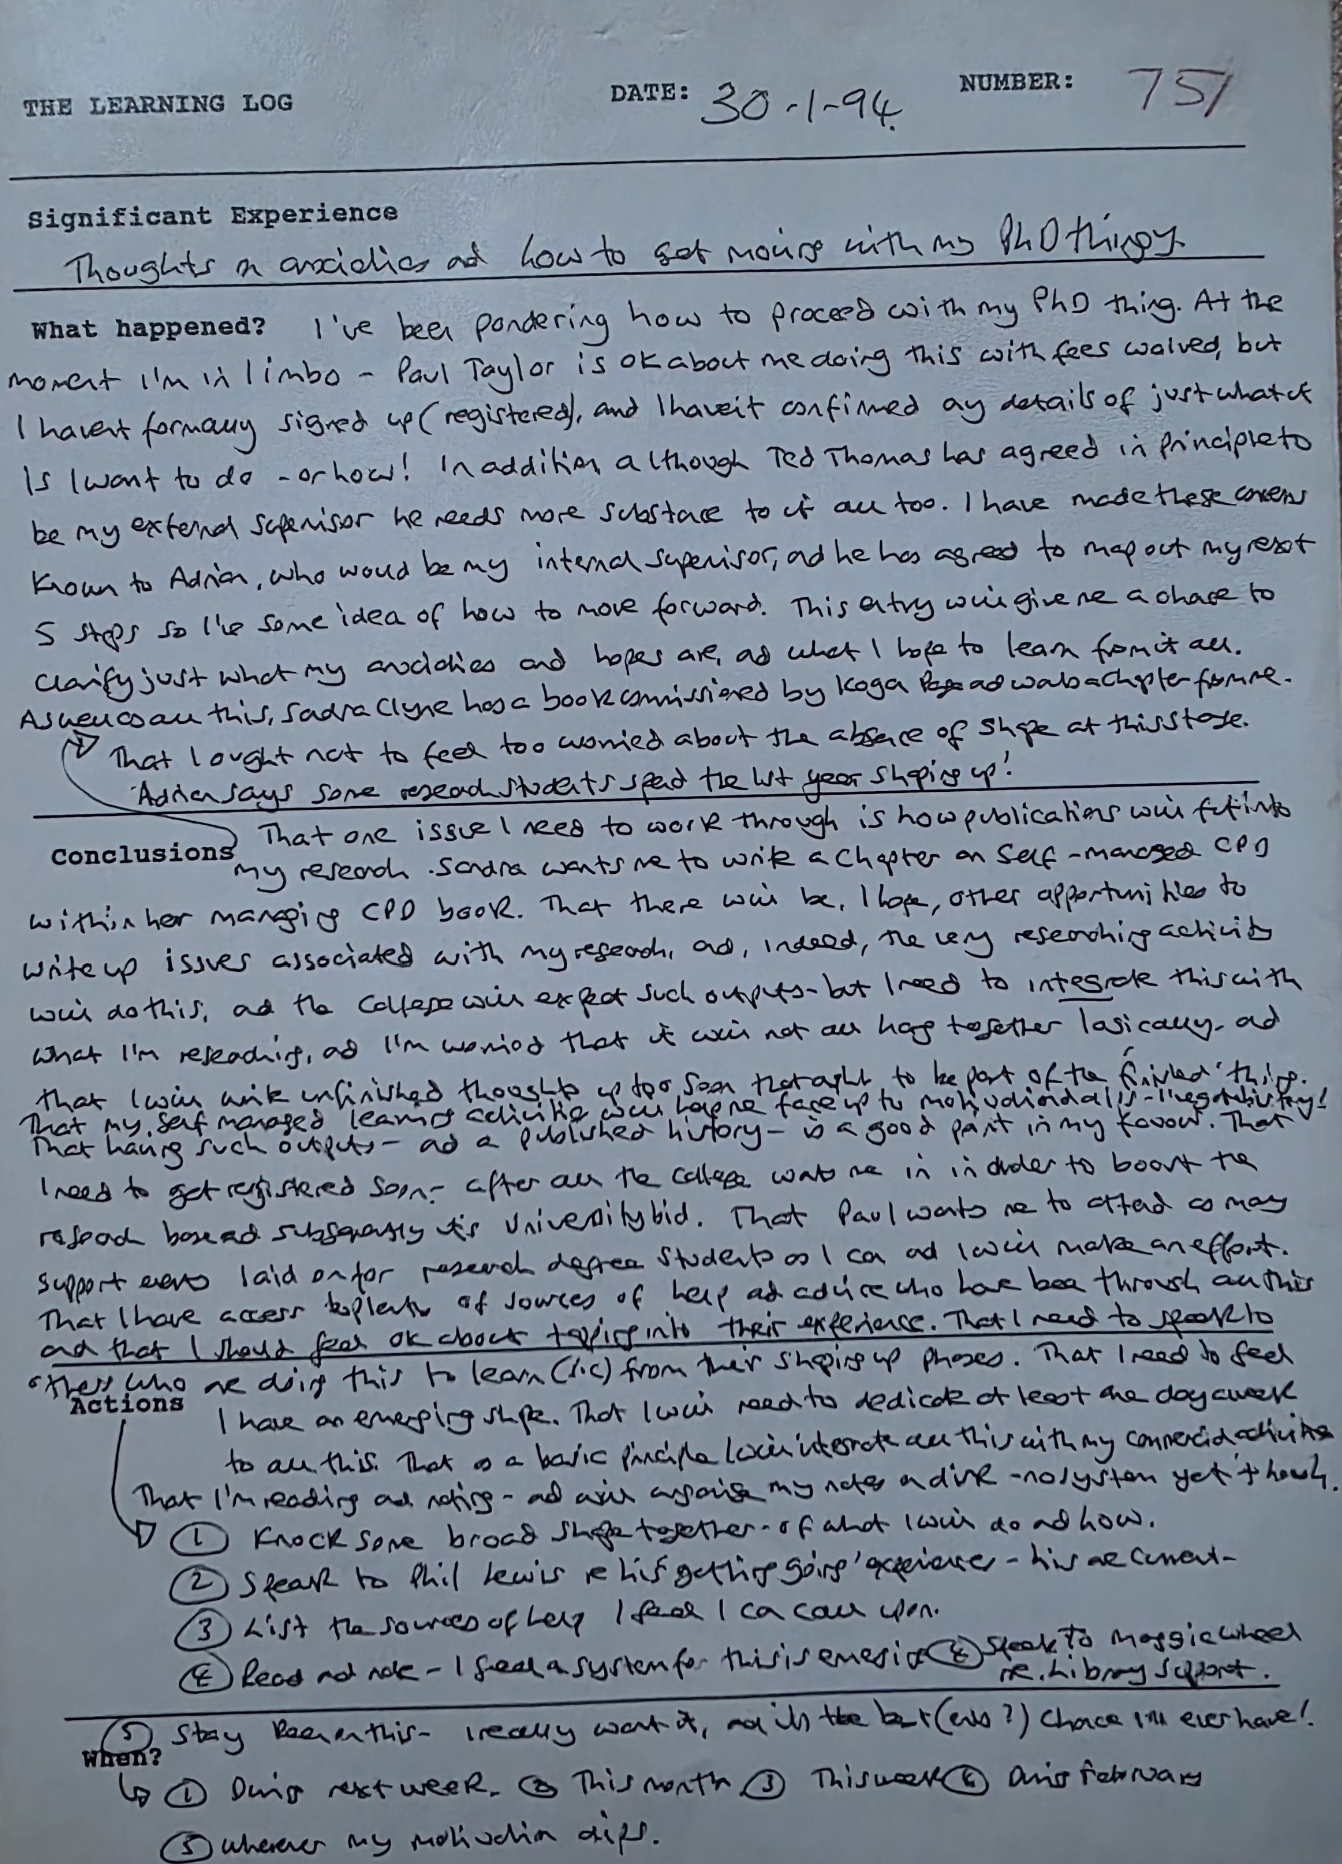 THE LEARNING LOG DATE: 30-1-94. NUMBER: 751
Significant Experience
Thoughts on anxieties and how to get moving with my PhD thingy.
What happened? I've been pondering how to proceed with my PhD thing. At the
moment I'm in limbo - Paul Taylor is ok about me doing this with fees waived, but
I havent formally signed up (registered), and I haven't confirmed any details of just what it
is I want to do - or how! In addition although Ted Thomas has agreed in principle to
be my external supervisor he needs more substance to it all too. I have made these concerns
known to Adrian, who would be my internal supervisor, and he has agreed to map out my next
5 steps so I've some idea of how to move forward. This entry will give me a chance to
clarify just what my anxieties and hopes are, and what I hope to learn from it all.
As well as all this, Sandra Clyne has a book commissioned by Koga Page and wants a chapter from me.
That I ought not to feel too worried about the absence of shape at this stage.
Adrian says some research students spend the 1st year shaping up!
Conclusions That one issue I need to work through is how publications will fit into
my research. Sandra wants me to write a chapter on self-managed CPD
within her managing CPD book. That there will be, I hope, other opportunities to
write up issues associated with my research, and, indeed, the very researching activity
will do this, and the College will expect such outputs - but I need to integrate this with
what I'm researching, and I'm worried that it will not all hang together logically - and
that I will write unfinished thoughts up too soon that ought to be part of the 'finished' thing.
That my self managed learning activities will help me face up to motivational
That having such outputs - and a published history - is a good point in my favour. That
I need to get registered soon - after all the College wants me in in order to boost the
research base and subsequently its University bid. That Paul wants me to attend as many
support events laid on for research degree students as I can and I will make an effort.
That I have access to plenty of sources of help and advice who have been through all this
and that I should feel ok about tapping into their experience. That I need to speak to
others who are doing this to learn (sic) from their shaping up phases. That I need to feel
Actions I have an emerging shape. That I will need to dedicate at least one day a week
to all this. That as a basic principle I will integrate all this with my commercial activities
That I'm reading and noting - and will organise my notes on disk - no system yet though.
① Knock some broad shape together - of what I will do and how.
② Speak to Phil Lewis re his 'getting going' experiences - his are current -
③ List the sources of help I feel I can call upon.
④ Read and note - I feel a system for this is emerging ⑥ Speak to Maggie Wheel
re. Library support.
⑤ Stay keen on this - I really want it, and its the best (only?) chance I'll ever have!
When?
① During next week. ② This month ③ This week ⑥ During February
⑤ Whenever my motivation dips.